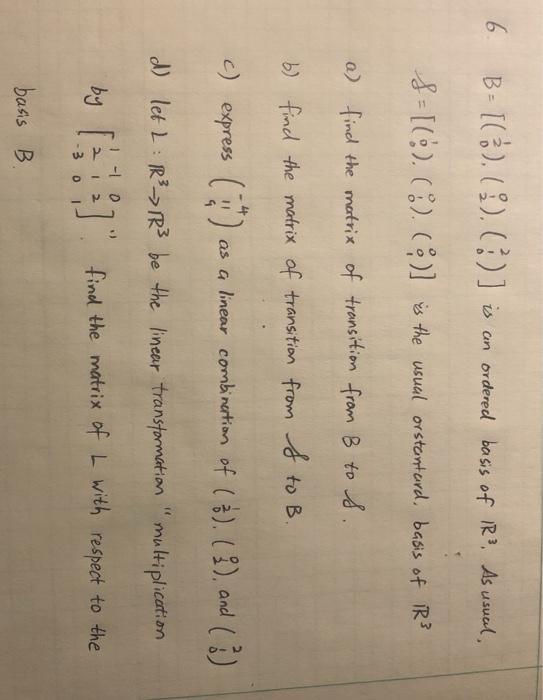 6 B = [(1 2 0), (0 1 2), (2 1 0)] is an ordered basis of ℝ³. As usual,
𝒮 = [(1 0 0), (0 1 0), (0 0 1)] is the usual orstantard, basis of ℝ³
a) find the matrix of transition from B to 𝒮.
b) find the matrix of transition from 𝒮 to B.
c) express (-4 11 9) as a linear combination of (1 2 0), (0 1 2), and (2 1 0)
d) let L : ℝ³→ℝ³ be the linear transformation "multiplication
by [1 -1 0
2 1 2
-3 0 1]". find the matrix of L with respect to the
basis B.